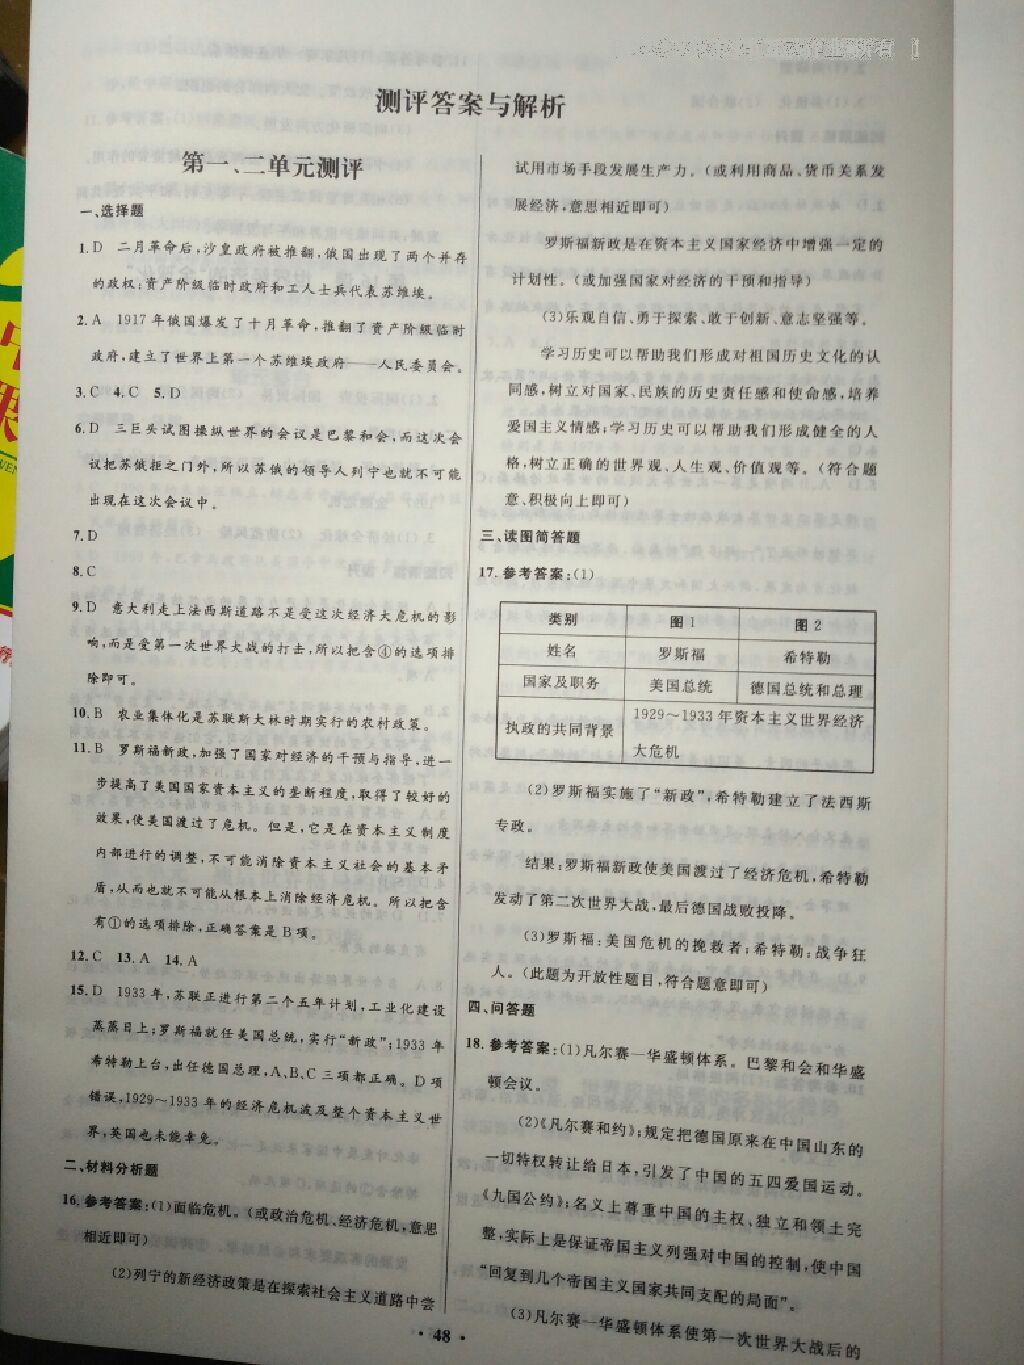 测评答案与解析
第一、二单元测评
一、选择题
1. D 二月革命后,沙皇政府被推翻,俄国出现了两个并存
的政权:资产阶级临时政府和工人士兵代表苏维埃。
2. A 1917年俄国爆发了十月革命,推翻了资产阶级临时
政府,建立了世界上第一个苏维埃政府——人民委员会。
3. C 4. C 5. D
6. D 三巨头试图操纵世界的会议是巴黎和会,而这次会
议把苏俄拒之门外,所以苏俄的领导人列宁也就不可能
出现在这次会议中。
7. D
8. C
9. D 意大利走上法西斯道路不是受这次经济大危机的影
响,而是受第一次世界大战的打击,所以把含④的选项排
除即可。
10. B 农业集体化是苏联斯大林时期实行的农村政策。
11. B 罗斯福新政,加强了国家对经济的干预与指导,进一
步提高了美国国家资本主义的垄断程度,取得了较好的
效果,使美国渡过了危机。但是,它是在资本主义制度
内部进行的调整,不可能消除资本主义社会的基本矛
盾,从而也就不可能从根本上消除经济危机。所以把含
有①的选项排除,正确答案是B项。
12. C 13. A 14. A
15. D 1933年,苏联正进行第二个五年计划,工业化建设
蒸蒸日上;罗斯福就任美国总统,实行“新政”;1933年
希特勒上台,出任德国总理,A、B、C三项都正确。D项
错误,1929~1933年的经济危机波及整个资本主义世
界,英国也未能幸免。
二、材料分析题
16. 参考答案:(1)面临危机。(或政治危机、经济危机,意思
相近即可)
(2)列宁的新经济政策是在探索社会主义道路中尝
试用市场手段发展生产力。(或利用商品、货币关系发
展经济,意思相近即可)
罗斯福新政是在资本主义国家经济中增强一定的
计划性。(或加强国家对经济的干预和指导)
(3)乐观自信、勇于探索、敢于创新、意志坚强等。
学习历史可以帮助我们形成对祖国历史文化的认
同感,树立对国家、民族的历史责任感和使命感,培养
爱国主义情感;学习历史可以帮助我们形成健全的人
格,树立正确的世界观、人生观、价值观等。(符合题
意、积极向上即可)
三、读图简答题
17. 参考答案:(1)
类别 图1 图2
姓名 罗斯福 希特勒
国家及职务 美国总统 德国总统和总理
执政的共同背景 1929~1933年资本主义世界经济
大危机
(2)罗斯福实施了“新政”,希特勒建立了法西斯
专政。
结果:罗斯福新政使美国渡过了经济危机,希特勒
发动了第二次世界大战,最后德国战败投降。
(3)罗斯福:美国危机的挽救者;希特勒:战争狂
人。(此题为开放性题目,符合题意即可)
四、问答题
18. 参考答案:(1)凡尔赛—华盛顿体系。巴黎和会和华盛
顿会议。
(2)《凡尔赛和约》;规定把德国原来在中国山东的
一切特权转让给日本,引发了中国的五四爱国运动。
《九国公约》;名义上尊重中国的主权、独立和领土完
整,实际上是保证帝国主义列强对中国的控制,使中国
“回复到几个帝国主义国家共同支配的局面”。
(3)凡尔赛—华盛顿体系使第一次世界大战后的
· 48 ·